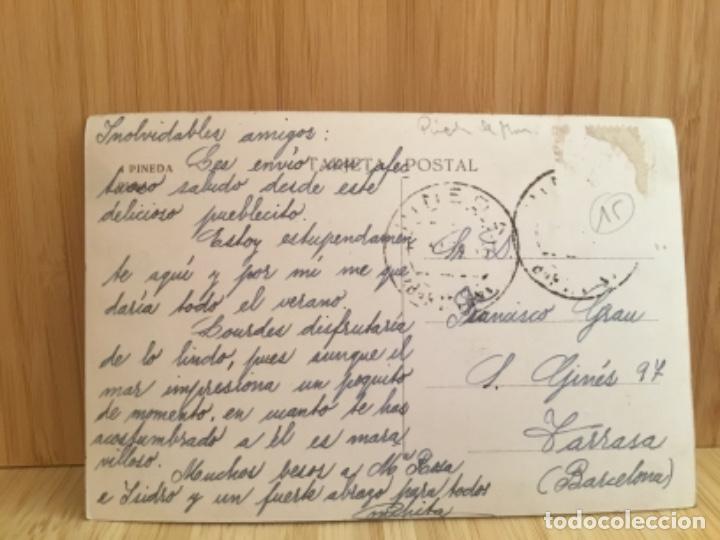 Inolvidables amigos:
PINEDA
TARJETA POSTAL
Les envío un afec
tuoso saludo desde este
delicioso pueblecito.
Estoy estupendamen
te aquí y por mí me que
daría todo el verano.
Lourdes disfrutaría
de lo lindo, pues aunque el
mar impresiona un poquito
de momento, en cuanto te has
acostumbrado a él es mara
villoso.
Muchos besos a Mª Rosa
e Isidro y un fuerte abrazo para todos
Sr. D.
Francisco Grau
S. Ginés 97
Tarrasa
(Barcelona)
15
todocoleccion
todocoleccion.net